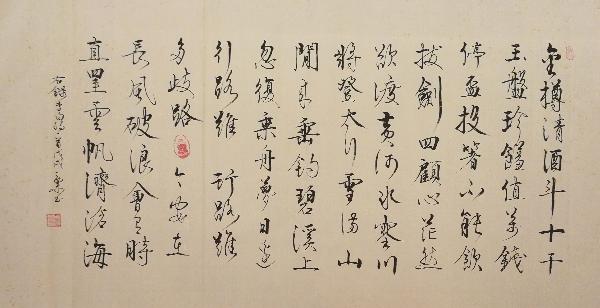 金樽清酒斗十千
玉盤珍饈值萬錢
停盃投箸不能飲
拔劍四顧心茫然
欲渡黃河冰塞川
將登太行雪滿山
閒來垂釣碧溪上
忽復乘舟夢日邊
行路難行路難
多歧路今安在
長風破浪會有時
直罣雲帆濟滄海
右錄李白詩